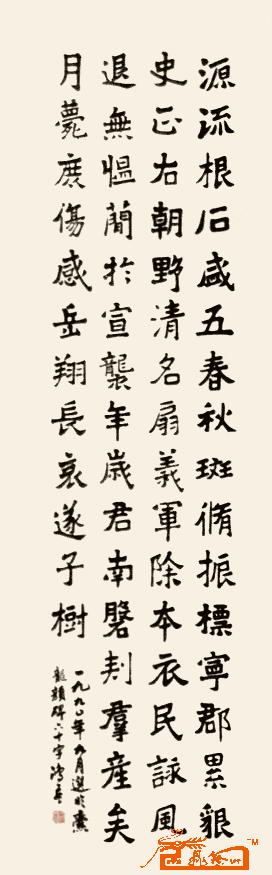 源流根石咸五春秋斑脩振標寧郡累貌
史正右朝野清名扇義軍除本衣民詠風
退無愠蕳於宣襲年歲君南磬刾羣産矣
月薨庻傷感岳翔長哀遂子樹
一九九〇年九月選於爨
龍顔碑六十字